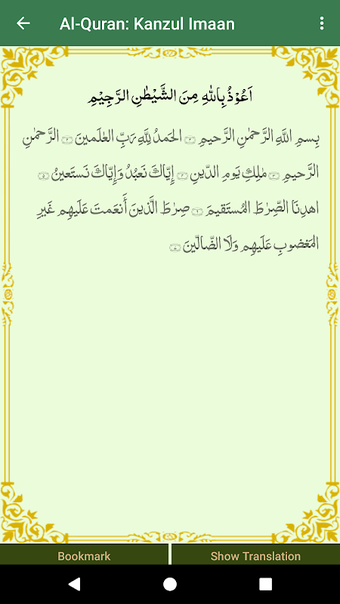 Al-Quran: Kanzul Imaan
اَعُوْذُ بِاللّٰهِ مِنَ الشَّيْطٰنِ الرَّجِيْمِ
بِسمِ اللَّهِ الرَّحمٰنِ الرَّحيمِ ﴿١﴾ الحَمدُ لِلَّهِ رَبِّ العٰلَمينَ ﴿٢﴾ الرَّحمٰنِ
الرَّحيمِ ﴿٣﴾ مٰلِكِ يَومِ الدّينِ ﴿٤﴾ إِيّاكَ نَعبُدُ وَإِيّاكَ نَستَعينُ ﴿٥﴾
اهدِنَا الصِّرٰطَ المُستَقيمَ ﴿٦﴾ صِرٰطَ الَّذينَ أَنعَمتَ عَلَيهِم غَيرِ
المَغضوبِ عَلَيهِم وَلَا الضّالّينَ ﴿٧﴾
Bookmark
Show Translation